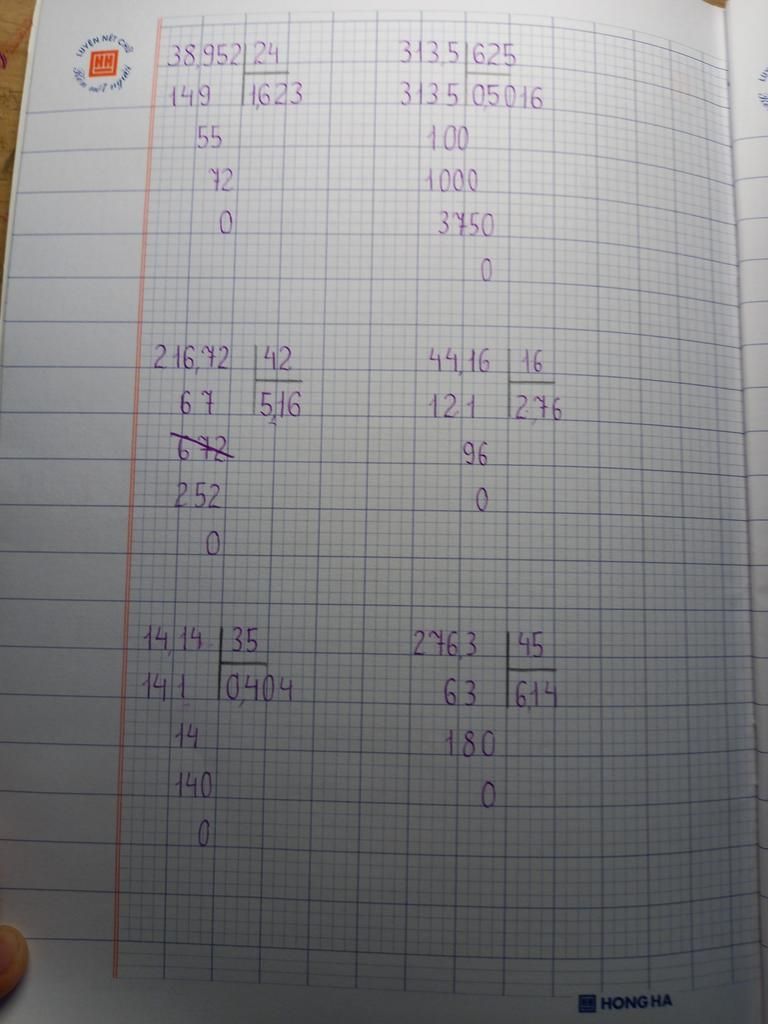 LUYỆN NÉT CHỮ
HH
Rèn nét người
38,952 24
149 1,623
55
72
0
313,5 625
3135 0,5016
100
1000
3750
0
216,72 42
67 5,16
672
252
0
44,16 16
121 2,76
96
0
14,14 35
141 0,404
14
140
0
276,3 45
63 6,14
180
0
HONG HA